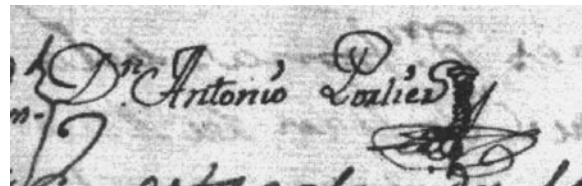 Dn. Antonio Porlier